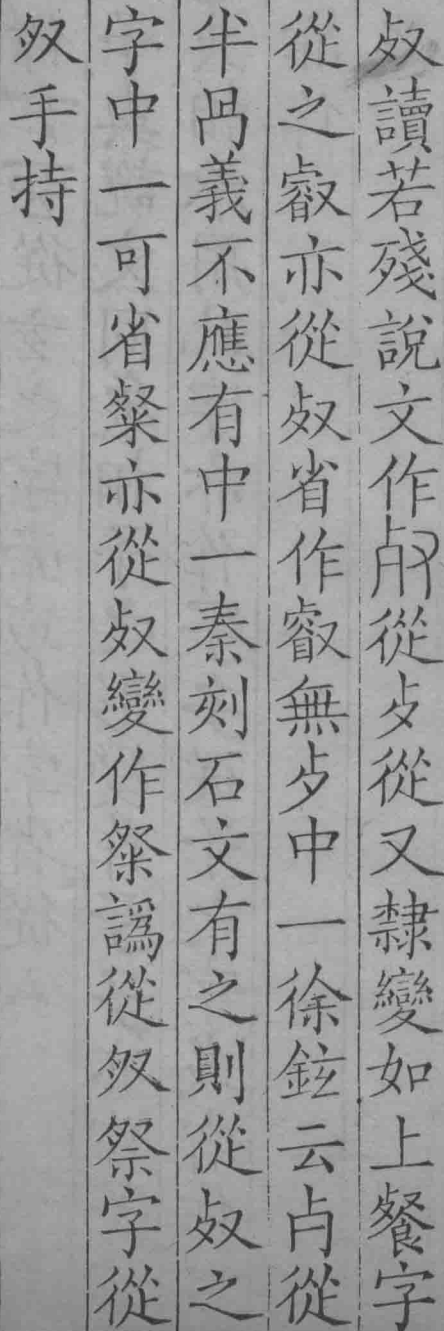 𣦼讀若殘說文作𣦻從歺從又隸變如上餐字
從之叡亦從𣦼省作叡無歺中一徐鉉云歺從
半冎義不應有中一秦刻石文有之則從𣦼之
字中一可省粲亦從𣦼變作粲譌從祭字從
手持